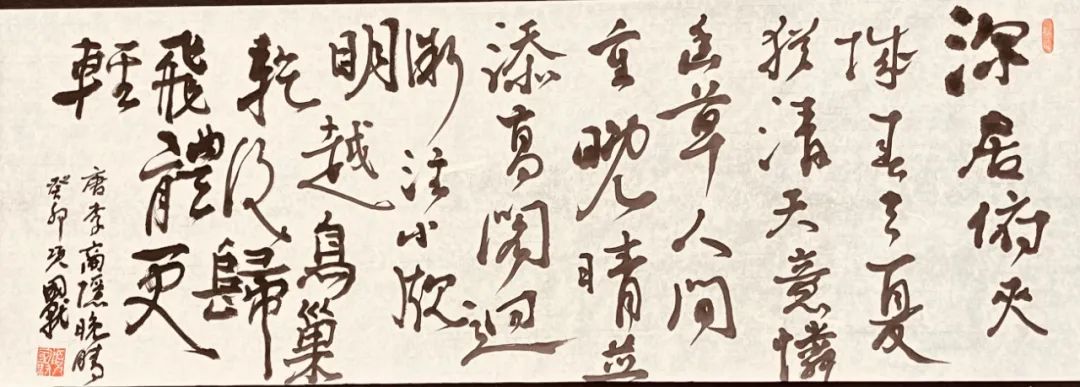 深居俯夾
城春去夏
猶清天意憐
幽草人間
重晚晴並
添高閣迥
注小牕
明越鳥巢
乾後歸
飛體更
輕
唐李商隱晚晴
癸卯國戰